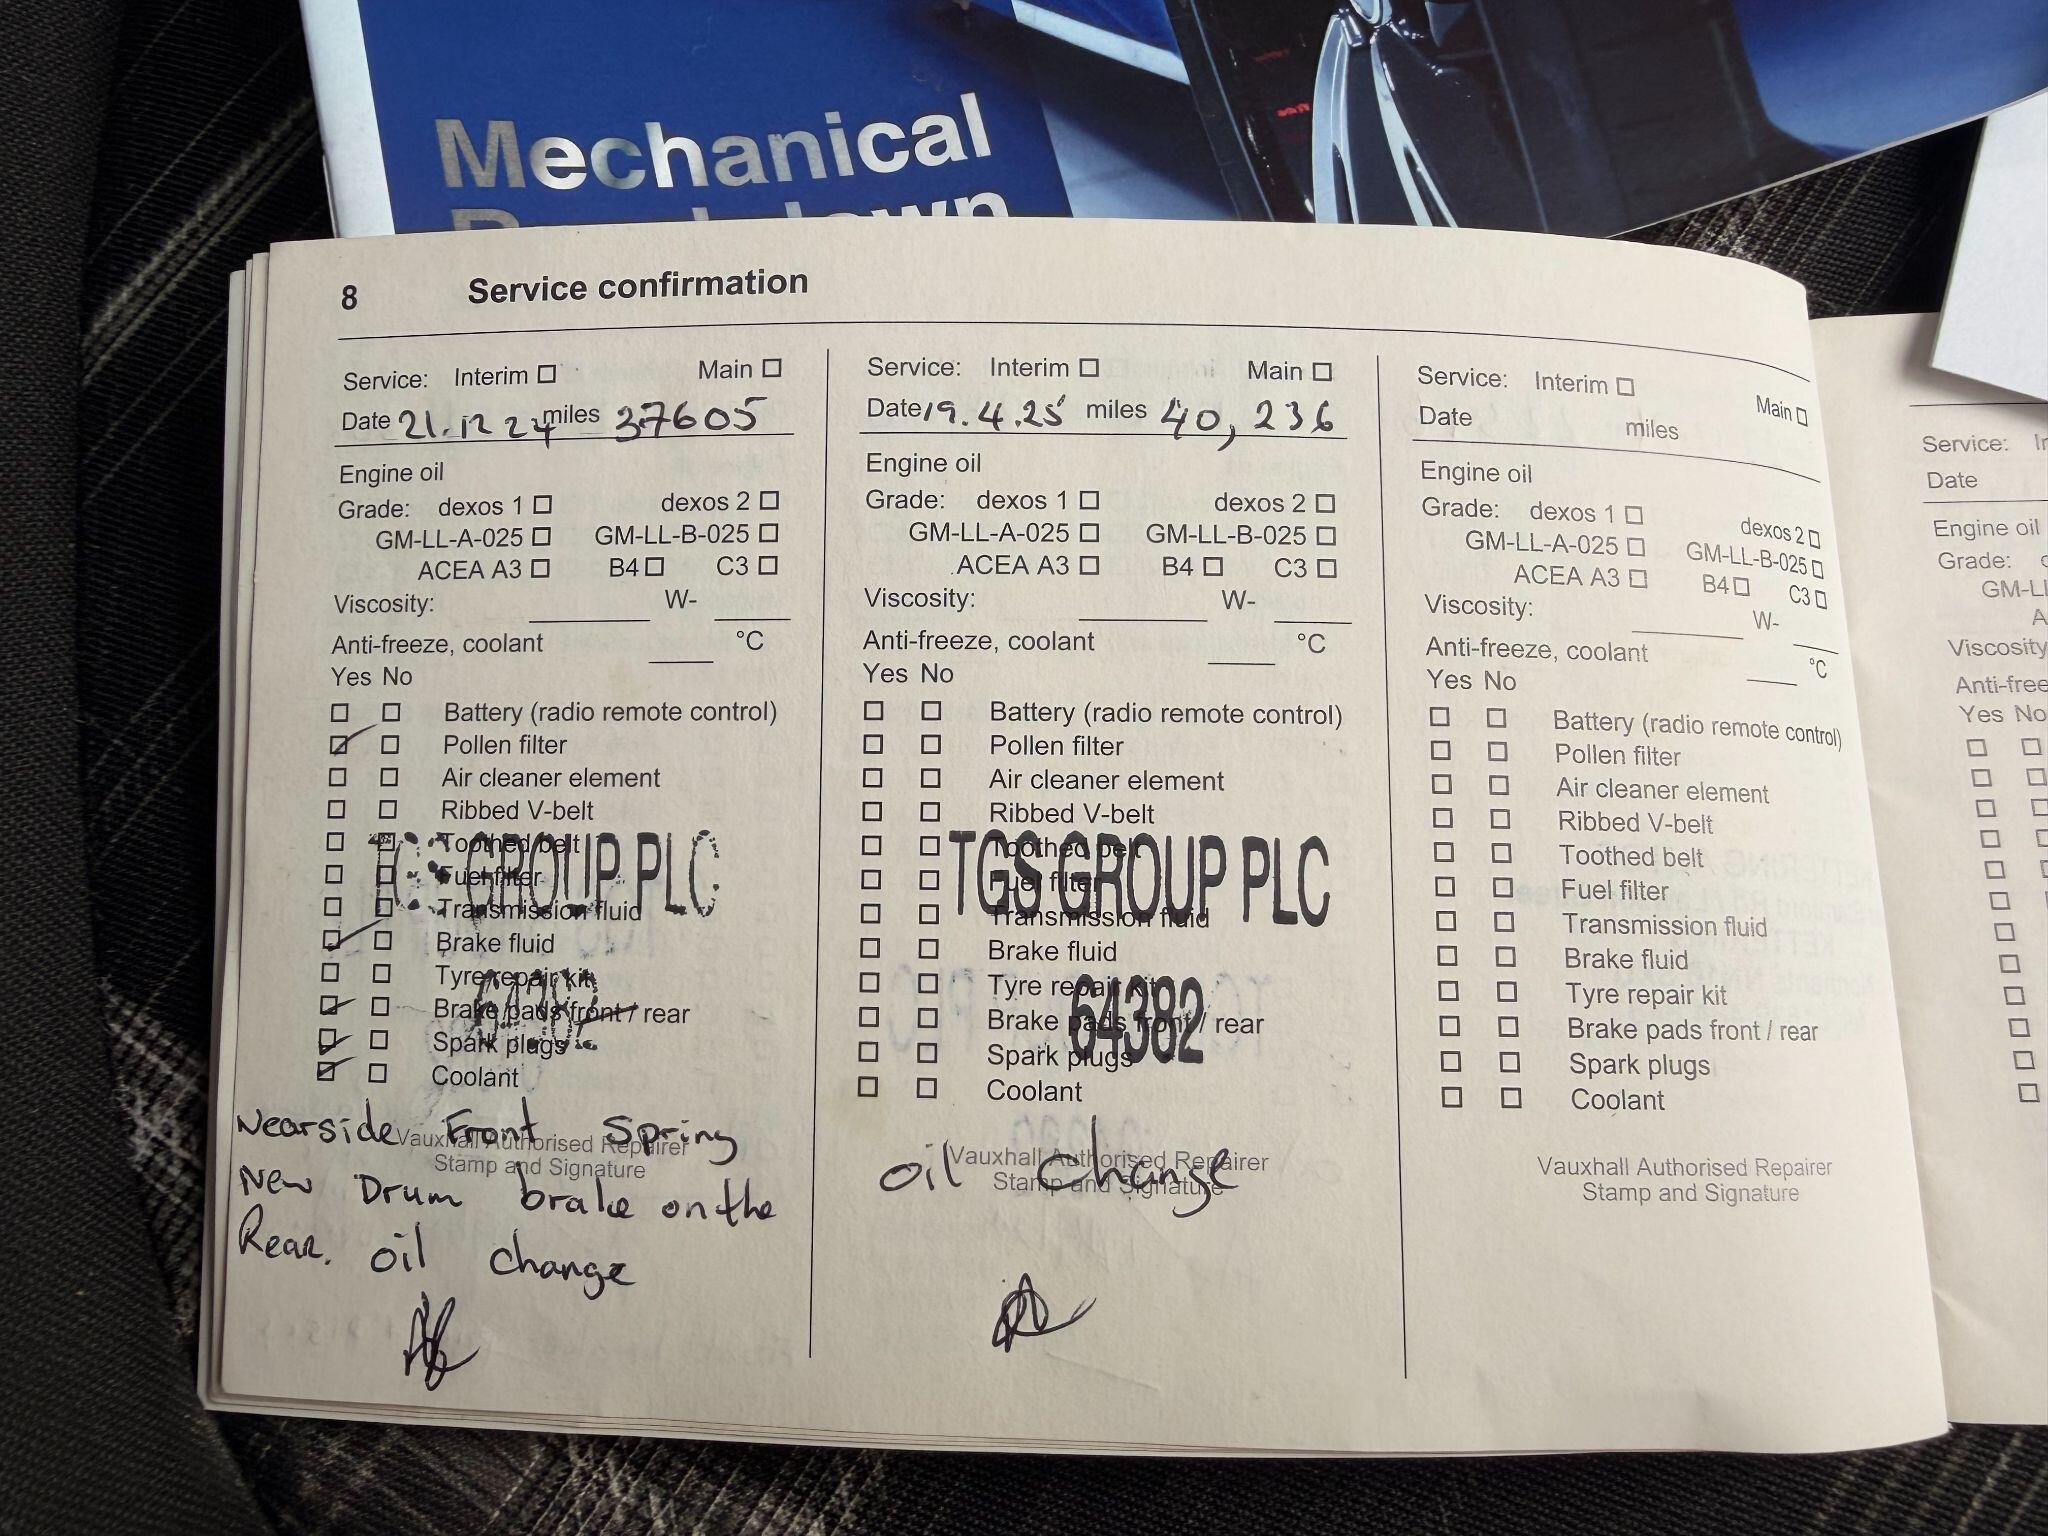 Mechanical
Breakdown
8 Service confirmation
Service: Interim ☐ Main ☐
Date 21.12 24 miles 37605
Engine oil
Grade: dexos 1 ☐ dexos 2 ☐
GM-LL-A-025 ☐ GM-LL-B-025 ☐
ACEA A3 ☐ B4 ☐ C3 ☐
Viscosity: W-
Anti-freeze, coolant °C
Yes No
Battery (radio remote control)
Pollen filter
Air cleaner element
Ribbed V-belt
Toothed belt
Fuel filter
Transmission fluid
Brake fluid
Tyre repair kit
Brake pads front / rear
Spark plugs
Coolant
TGS GROUP PLC
Vauxhall Authorised Repairer
Stamp and Signature
Nearside Front Spring
New Drum brake on the
Rear. oil change
Service: Interim ☐ Main ☐
Date 19.4.25 miles 40,236
Engine oil
Grade: dexos 1 ☐ dexos 2 ☐
GM-LL-A-025 ☐ GM-LL-B-025 ☐
ACEA A3 ☐ B4 ☐ C3 ☐
Viscosity: W-
Anti-freeze, coolant °C
Yes No
Battery (radio remote control)
Pollen filter
Air cleaner element
Ribbed V-belt
Toothed belt
Fuel filter
Transmission fluid
Brake fluid
Tyre repair kit
Brake pads front / rear
Spark plugs
Coolant
TGS GROUP PLC
64382
Vauxhall Authorised Repairer
Stamp and Signature
oil change
Service: Interim ☐ Main ☐
Date miles
Engine oil
Grade: dexos 1 ☐ dexos 2 ☐
GM-LL-A-025 ☐ GM-LL-B-025 ☐
ACEA A3 ☐ B4 ☐ C3 ☐
Viscosity: W-
Anti-freeze, coolant °C
Yes No
Battery (radio remote control)
Pollen filter
Air cleaner element
Ribbed V-belt
Toothed belt
Fuel filter
Transmission fluid
Brake fluid
Tyre repair kit
Brake pads front / rear
Spark plugs
Coolant
Vauxhall Authorised Repairer
Stamp and Signature
Service:
Date
Engine oil
Grade:
Viscosity
Yes No